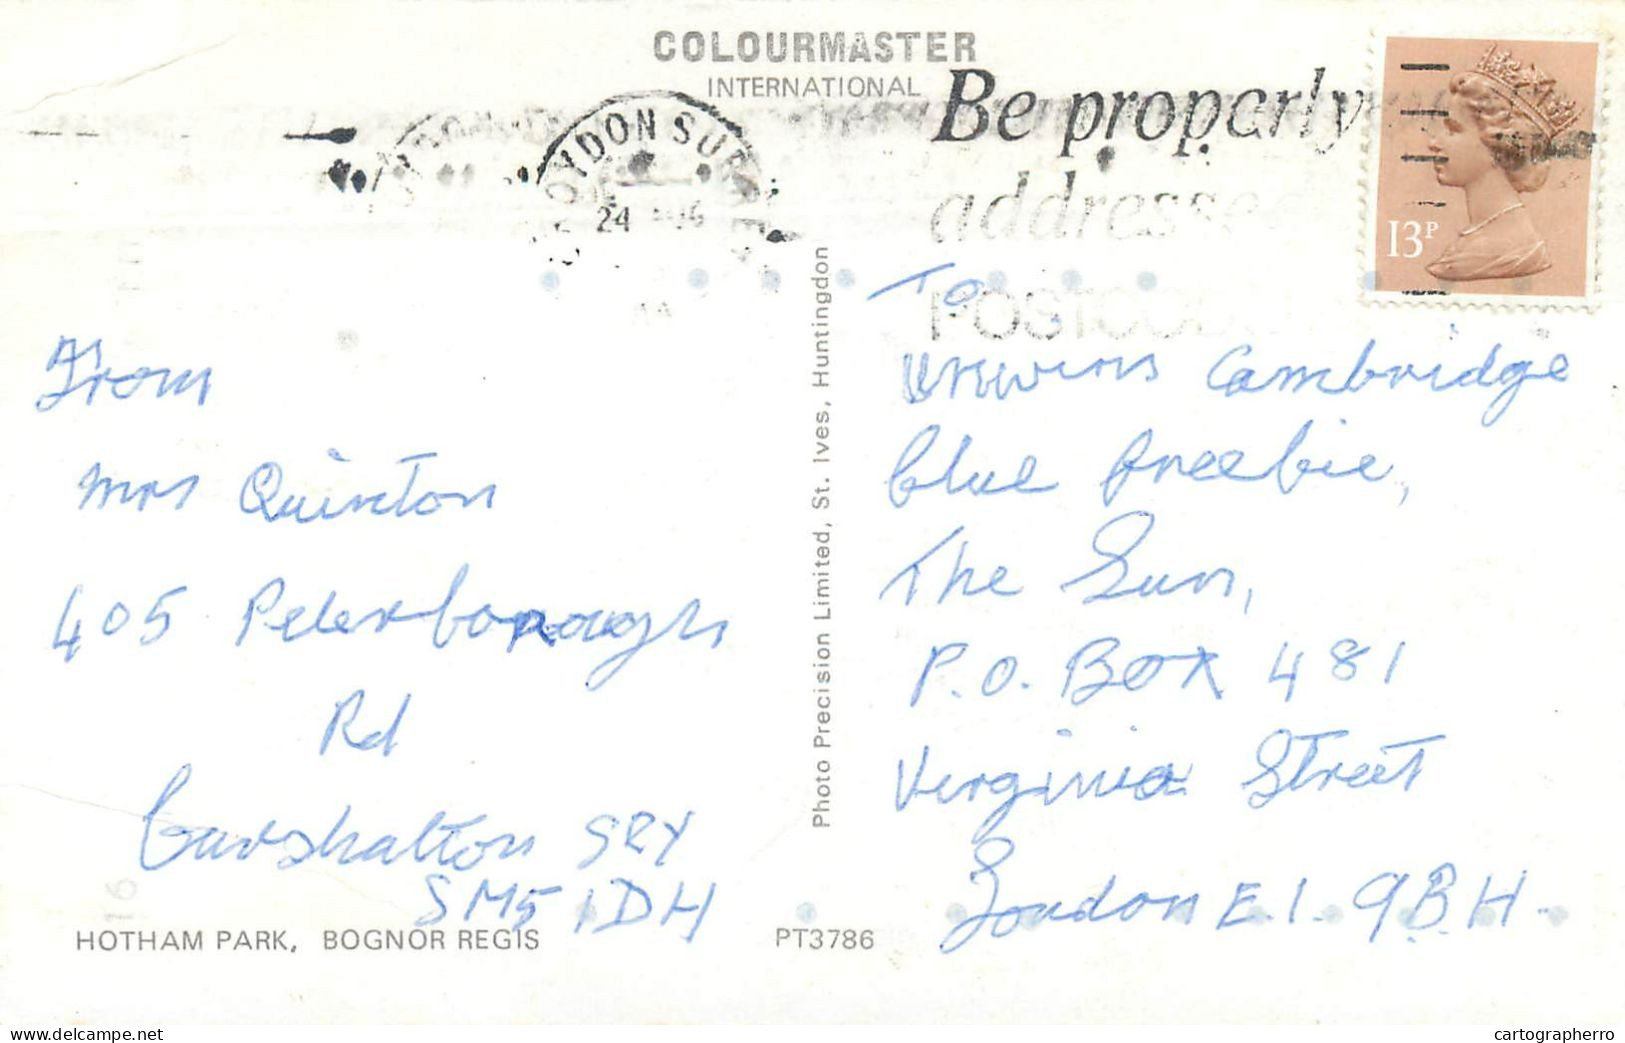 COLOURMASTER
INTERNATIONAL
Be properly
addressed
POSTCODE
CROYDON SURREY
24 AUG
13P
From
Mrs Quinton
405 Peterborough
Rd
Carshalton SRY
SM5 1DH
HOTHAM PARK, BOGNOR REGIS
PT3786
Photo Precision Limited, St. Ives, Huntingdon
To
Unwins Cambridge
blue freebie,
The Sun,
P.O. Box 481
Virginia Street
London E.1. 9.B.H.
www.delcampe.net
cartographerro